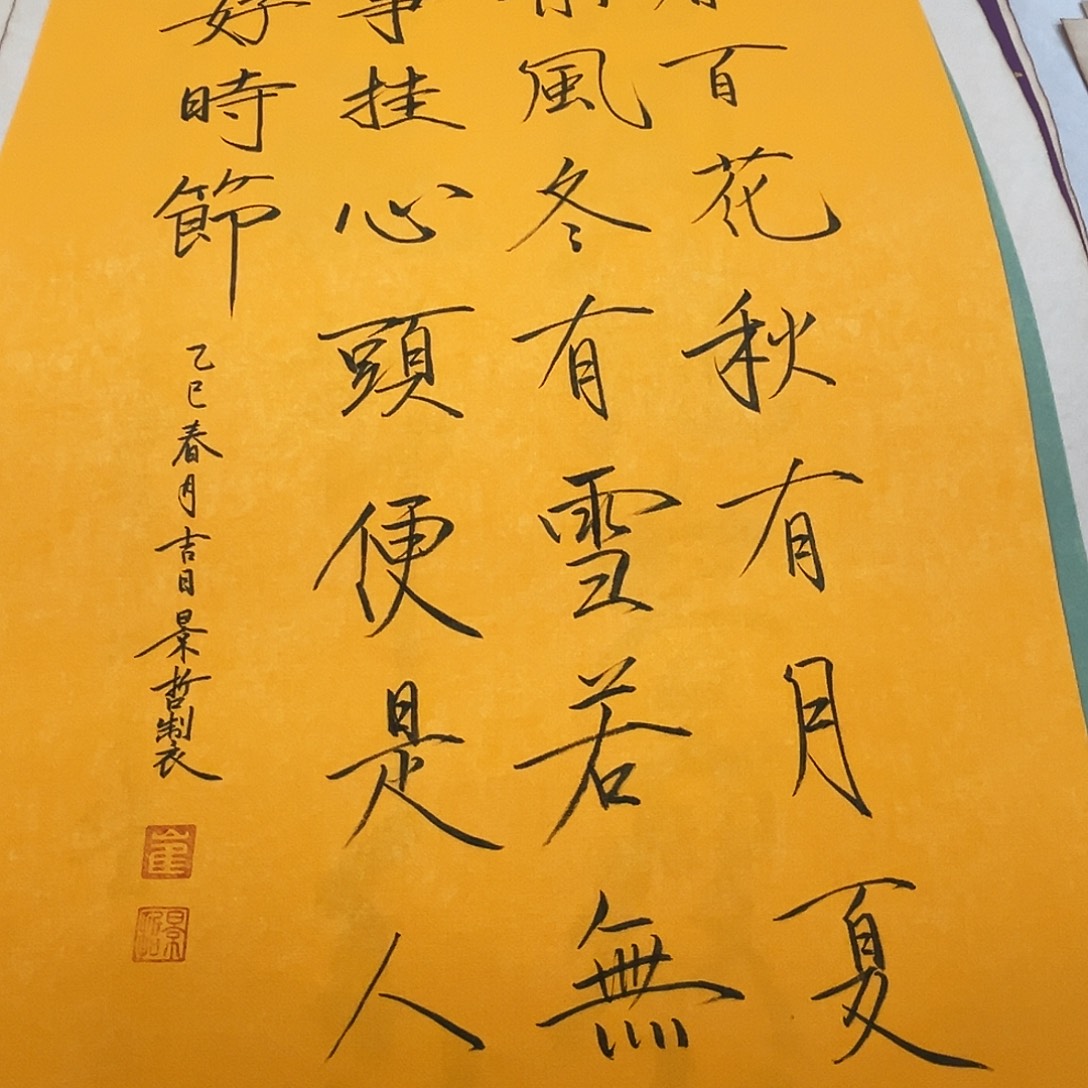 百花秋有月夏
風冬有雪若無
事挂心頭便是人
好時節
乙巳春月吉日景哲製
崔